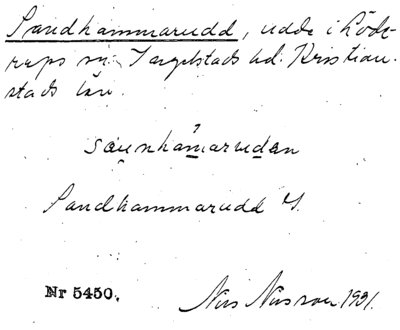 Sandhammarudd, udde i Löde-
rups sn. Ingelstads hd. Kristian-
stads län.
saunhámarudən
Sandhammarudd
Nr 5450.
Nils Nilsson 1921.